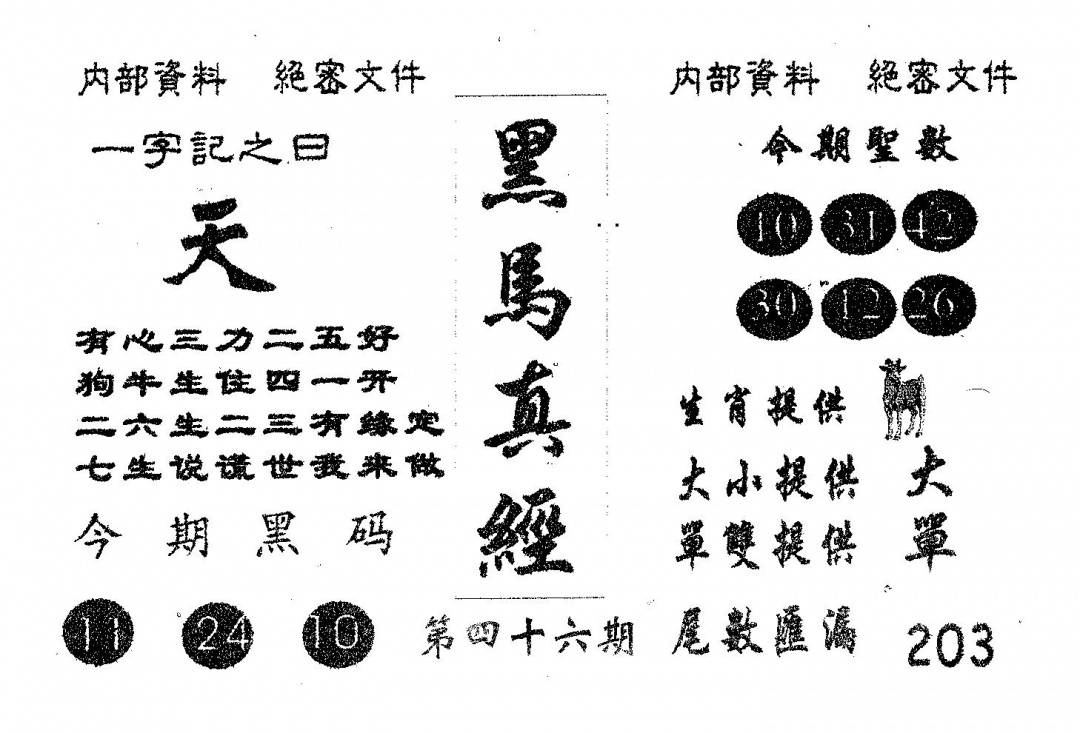 内部資料 絕密文件
一字記之曰
天
有心三力二五好
狗牛生住四一开
二六生二三有缘定
七生说谎世我来做
今期黑码
11 24 10
黑馬真經
第四十六期
内部資料 絕密文件
今期聖數
10 31 42
30 12 26
生肖提供
大小提供 大
單雙提供 單
尾數匯漏 203